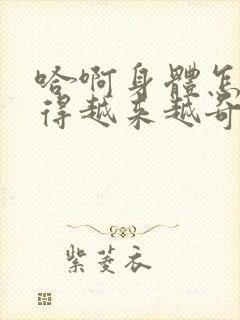 哈啊身體怎
得越来越奇
紫菱衣